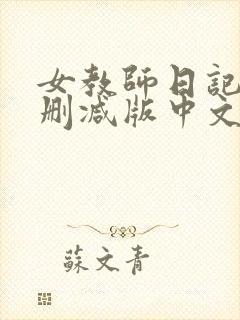 女教師日記
删减版中文
蘇文青